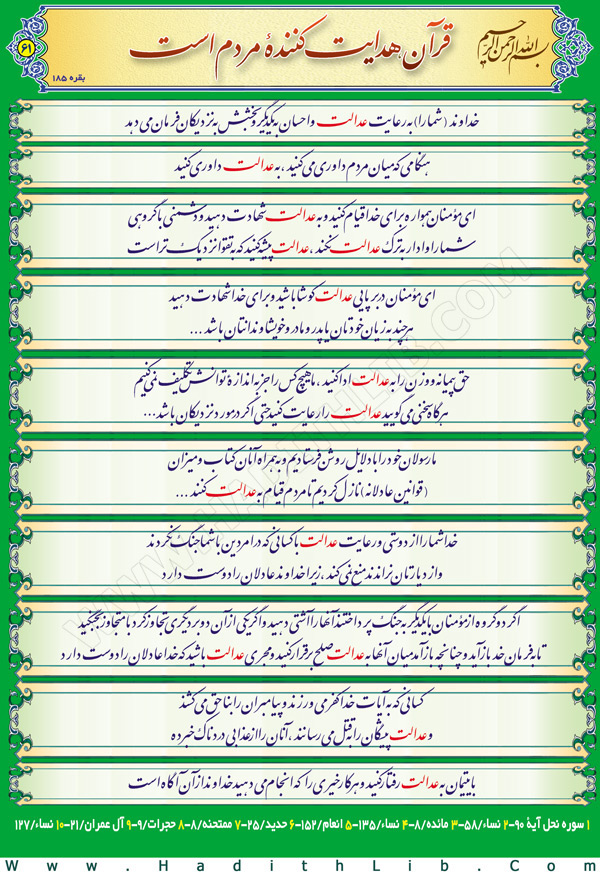 بسم الله الرحمن الرحیم
قرآن هدایت کنندهٔ مردم است
۶۱
بقره ۱۸۵
خداوند (شما را) به رعایت عدالت و احسان به یکدیگر و بخشش به نزدیکان فرمان می دهد
هنگامی که میان مردم داوری می کنید ، به عدالت داوری کنید
ای مؤمنان همواره برای خدا قیام کنید و به عدالت شهادت دهید و دشمنی با گروهی
شما را وادار به ترک عدالت نکند ، عدالت پیشه کنید که به تقوا نزدیک تر است
ای مؤمنان در برپایی عدالت کوشا باشید و برای خدا شهادت دهید
هر چند به زیان خودتان یا پدر و مادر و خویشاوندانتان باشد ...
حق پیمانه و وزن را به عدالت ادا کنید ، ما هیچ کس را جز به اندازهٔ توانش تکلیف نمی کنیم
هرگاه سخنی می گویید عدالت را رعایت کنید حتی اگر در مورد نزدیکان باشد...
ما رسولان خود را با دلایل روشن فرستادیم و به همراه آنان کتاب و میزان
(قوانین عادلانه) نازل کردیم تا مردم قیام به عدالت کنند ...
خدا شما را از دوستی و رعایت عدالت با کسانی که در امر دین با شما جنگ نکردند
و از دیارتان نراندند منع نمی کند ، زیرا خداوند عادلان را دوست دارد
اگر دو گروه از مؤمنان با یکدیگر به جنگ پرداختند آنها را آشتی دهید و اگر یکی از آن دو بر دیگری تجاوز کرد با متجاوز بجنگید
تا به فرمان خدا باز آید و چنانچه باز آمد میان آنها به عدالت صلح برقرار کنید و مجری عدالت باشید که خدا عادلان را دوست دارد
کسانی که به آیات خدا کفر می ورزند و پیامبران را بنا حق می کشند
و عدالت پیشگان را به قتل می رسانند ، آنان را از عذابی دردناک خبر ده
با یتیمان به عدالت رفتار کنید و هر کار خیری را که انجام می دهید خداوند از آن آگاه است
۱ سوره نحل آیهٔ ۹۰-۲ نساء/۵۸-۳ مائده/۸-۴ نساء/۱۳۵-۵ انعام/۱۵۲-۶ حدید/۲۵-۷ ممتحنه/۸-۸ حجرات/۹-۹ آل عمران/۲۱-۱۰ نساء/۱۲۷
www.HadithLib.Com
WWW.HADITHLIB.COM